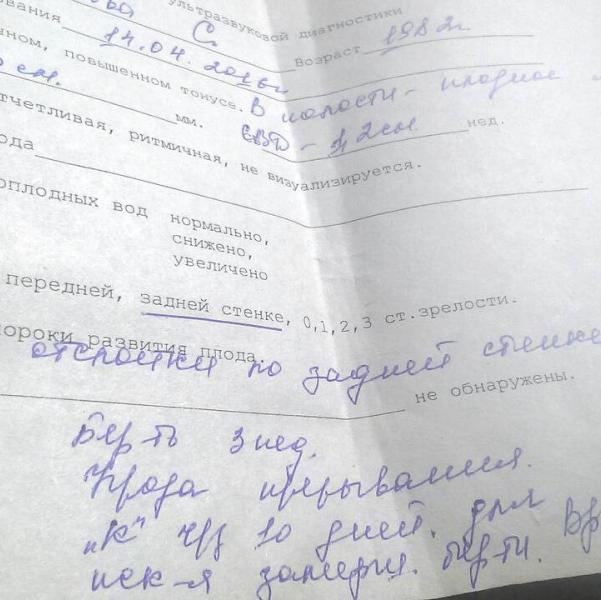 ультразвуковой диагностики
ования 14.04.2016г Возраст 1982г.
ном, повышенном тонусе. В полости - плодное
см. мм. СВД - 1,2см нед.
тчетливая, ритмичная, не визуализируется.
ода
оплодных вод нормально,
снижено,
увеличено
передней, задней стенке, 0,1,2,3 ст.зрелости.
ороки развития плода.
отслойки по задней стенке
не обнаружены.
Бер-ть 3 нед.
Угроза прерывания.
„К" ч/з 10 дней. для
иск-я замерш. бер-ти.